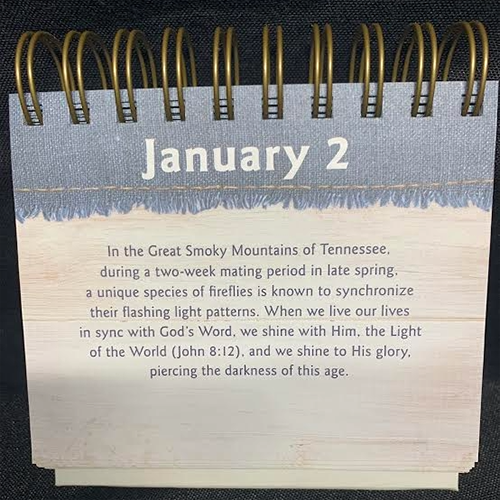 January 2
In the Great Smoky Mountains of Tennessee,
during a two-week mating period in late spring,
a unique species of fireflies is known to synchronize
their flashing light patterns. When we live our lives
in sync with God's Word, we shine with Him, the Light
of the World (John 8:12), and we shine to His glory,
piercing the darkness of this age.